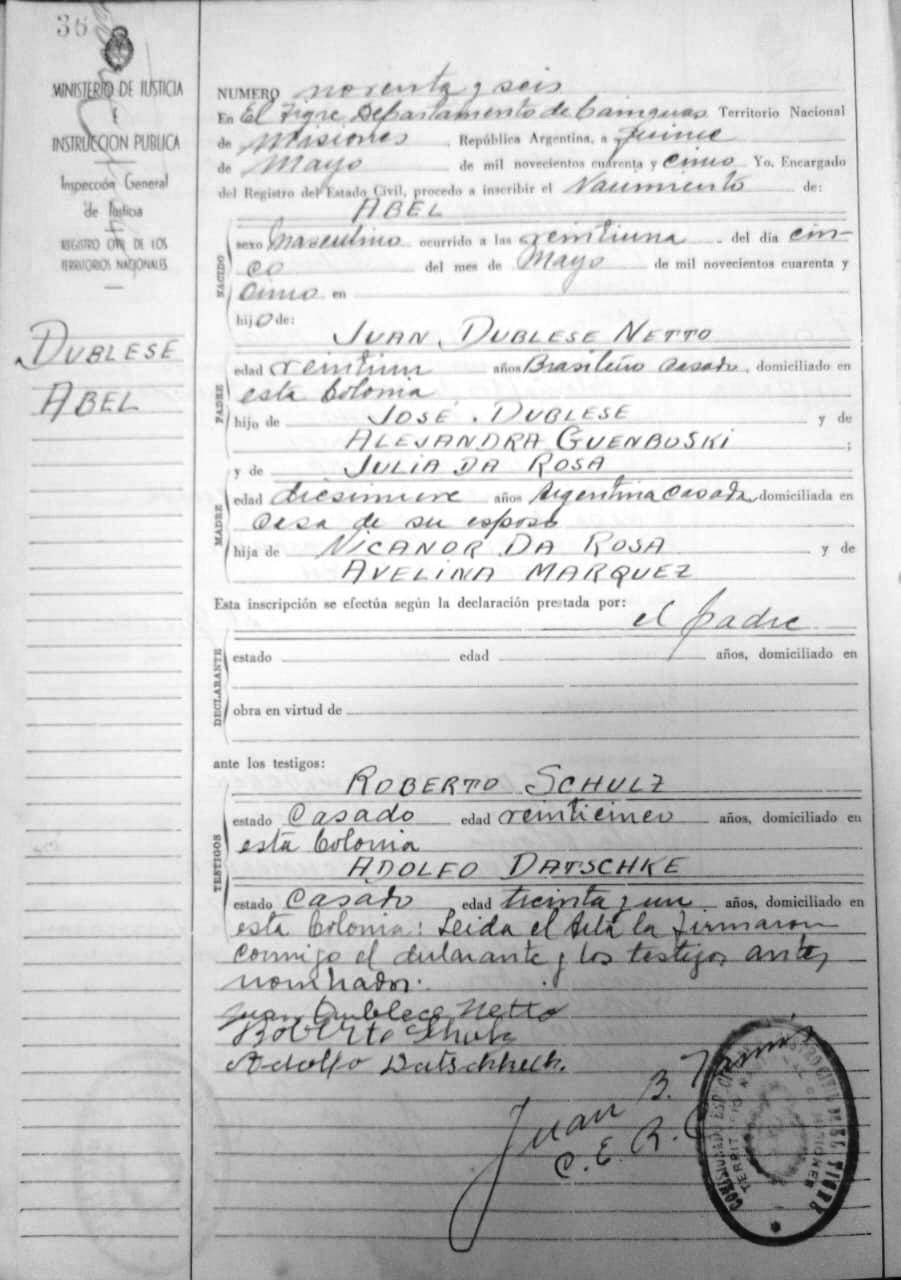 36
MINISTERIO DE JUSTICIA
E
INSTRUCCION PUBLICA
Inspección General
de Justicia
REGISTRO CIVIL DE LOS
TERRITORIOS NACIONALES
DUBLESE
ABEL
NUMERO noventa y seis
En El Tigre, Departamento de Cainguas Territorio Nacional
de Misiones, República Argentina, a Quince
de Mayo de mil novecientos cuarenta y cinco Yo, Encargado
del Registro del Estado Civil, procedo a inscribir el Nacimiento de:
ABEL
NACIDO
sexo Masculino ocurrido a las veintiuna del día cin-
co del mes de Mayo de mil novecientos cuarenta y
cinco en
hijo de:
JUAN DUBLESE NETTO
PADRE
edad veintiun años Brasileño casado, domiciliado en
esta Colonia
hijo de JOSÉ. DUBLESE y de
ALEJANDRA GUENBUSKI;
y de JULIA DA ROSA
MADRE
edad diesinueve años Argentina Casada, domiciliada en
Casa de su esposo
hija de NICANOR DA ROSA y de
AVELINA MARQUEZ
Esta inscripción se efectúa según la declaración prestada por:
el padre
DECLARANTE
estado edad años, domiciliado en
obra en virtud de
ante los testigos:
ROBERTO SCHULZ
TESTIGOS
estado Casado edad veinticinco años, domiciliado en
esta Colonia
ADOLFO DATSCHKE
estado Casado edad treinta y un años, domiciliado en
esta Colonia: Leida el Acta la firmaron
conmigo el declarante y los testigos ante,
nombrados.
Juan Dublece Netto
Roberto Schulz
Adolfo Datschke
Juan B.
C. E. R. C
TERRITORIO NACIONAL DE MISIONES